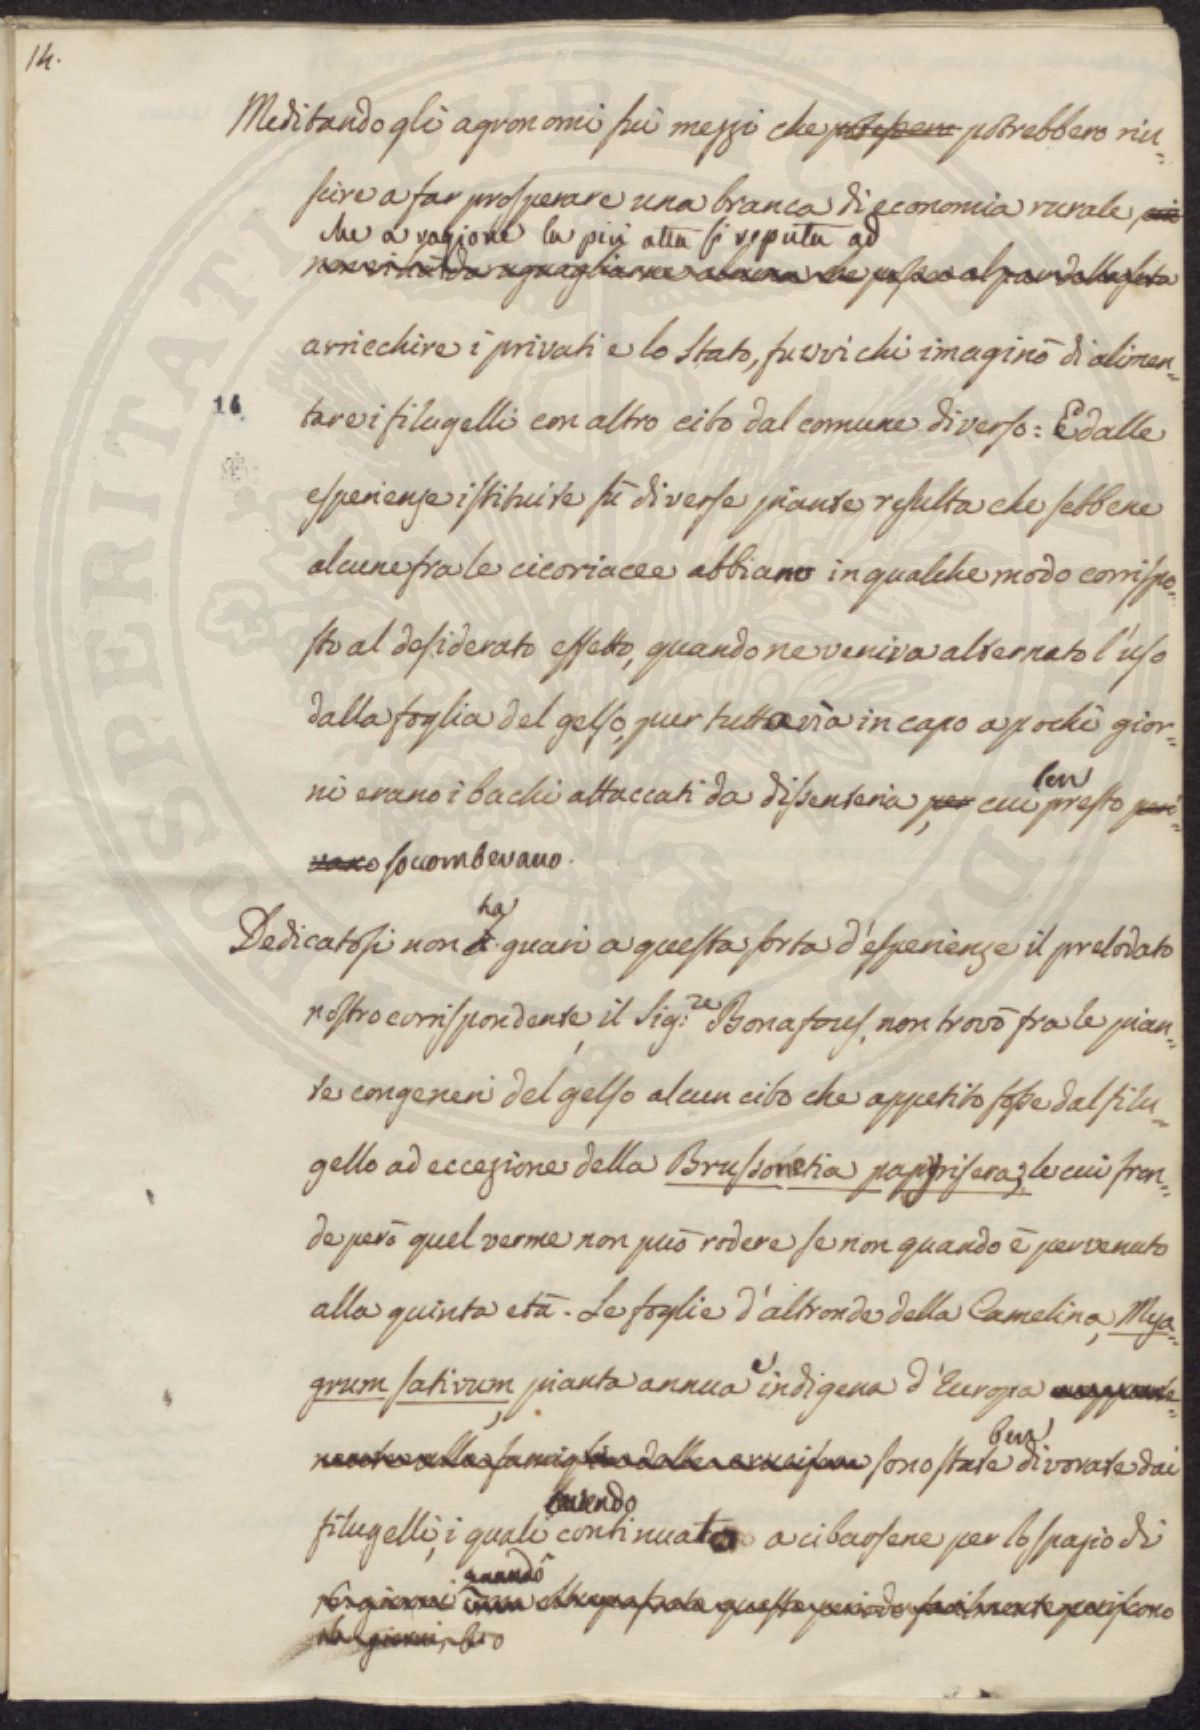 14.
Meditando gli agronomi sui mezzi che potessero potrebbero riu-
scire a far prosperare una branca di economia rurale,
che a ragione la più atta si reputa ad
arricchire i privati e lo Stato, fuvvi chi imaginò di alimen-
16
tare i filugelli con altro cibo dal comune diverso: E dalle
esperienze istituite sù diverse piante resulta che sebbene
alcune fra le cicoriacee abbiano in qualche modo corrispo-
sto al desiderato effetto, quando ne veniva alternato l'uso
dalla foglia del gelso, pur tuttavia in capo a pochi gior-
ni erano i bachi attaccati da disenteria, per cui ben presto peri-
vano soccombevano.
Dedicatosi non ha guari a questa sorta d'esperienze il prelodato
nostro corrispondente, il Sig:re Bonafous, non trovò fra le pian-
te congeneri del gelso alcun cibo che appetito fosse dal filu-
gello ad eccezione della Brussonetia papirifera; le cui fron-
de però quel verme non può rodere se non quando è pervenuto
alla quinta età. Le foglie d'altronde della Camelina, Mya-
grum sativum, pianta annua e indigena d'Europa apparte-
nente alla famiglia delle crucifere sono state ben divorate dai
filugelli, i quali continuato a cibarsene per lo spazio di
giorni quando questo periodo facilmente periscono
giorni,